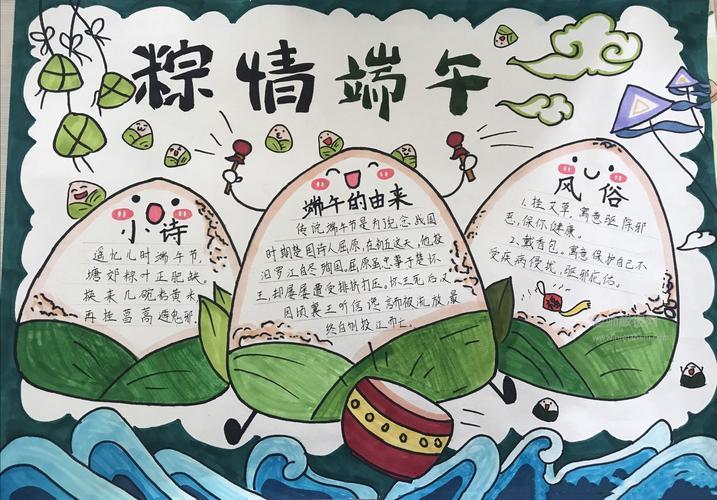 粽情端午
小诗
遥忆儿时端午节,
塘郊粽叶正肥缺。
换来几碗黄米,
再挂菖蒿遇鬼邪.
端午的由来
传说端午节是为纪念战国
时期楚国诗人屈原,在初五这天,他投
汨罗江自尽殉国。屈原虽忠事于楚怀
王,却屡屡遭受排挤打压。怀王死后又
因顷襄王听信谗言而被流放,最
终自刎投江而亡。
风俗
1.挂艾草,寓意驱除邪
恶,保你健康。
2.戴香包,寓意保护自己不
受疾病侵扰,驱邪庇佑。